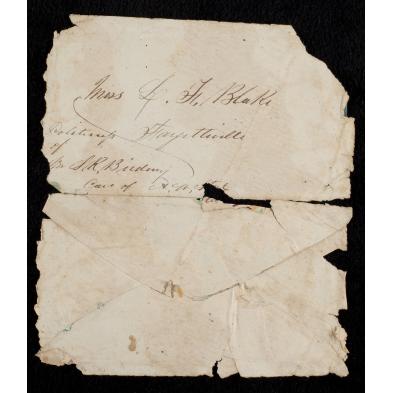 Miss L. H. Blake
Politeness Fayetteville
of
S. R. Birdsong
Care of